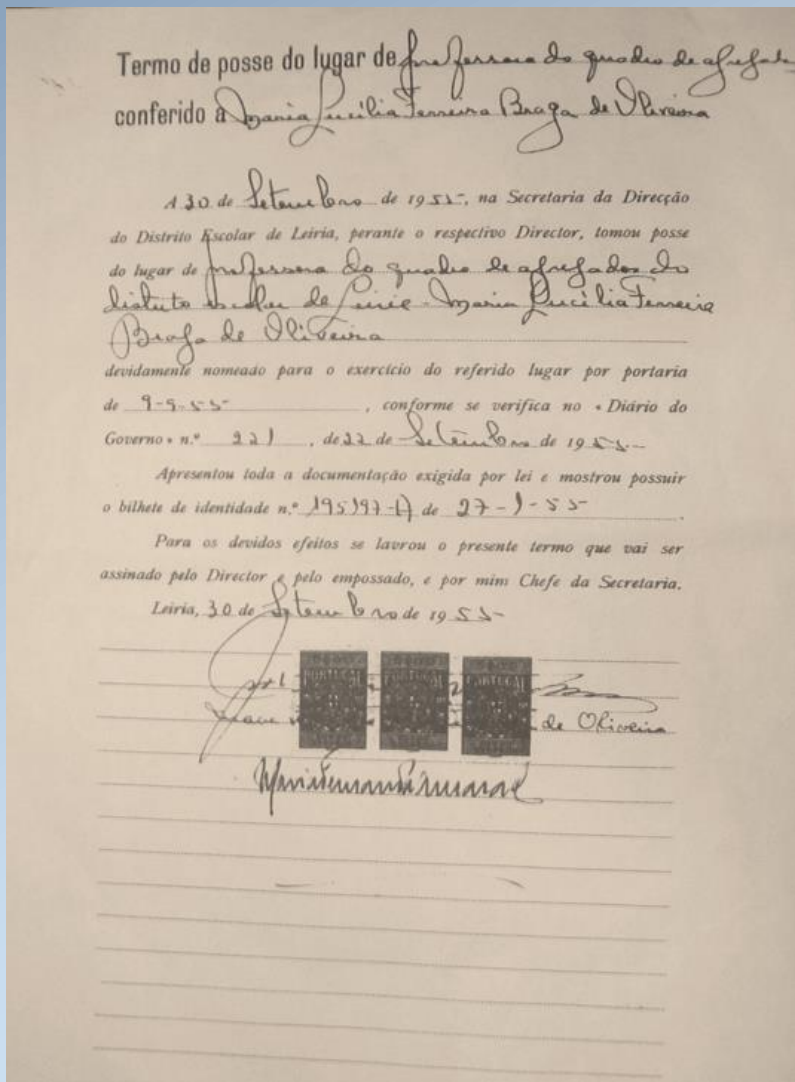 Termo de posse do lugar de professora do quadro de agregados
conferido a Maria Lucília Ferreira Braga de Oliveira
A 30 de Setembro de 1955, na Secretaria da Direcção
do Distrito Escolar de Leiria, perante o respectivo Director, tomou posse
do lugar de professora do quadro de agregados do
distrito escolar de Leiria - Maria Lucília Ferreira
Braga de Oliveira
devidamente nomeado para o exercício do referido lugar por portaria
de 9-9-55, conforme se verifica no «Diário do
Governo» n.º 221, de 22 de Setembro de 1955
Apresentou toda a documentação exigida por lei e mostrou possuir
o bilhete de identidade n.º 195197-A de 27-1-55.
Para os devidos efeitos se lavrou o presente termo que vai ser
assinado pelo Director e pelo empossado, e por mim Chefe da Secretaria.
Leiria, 30 de Setembro de 1955
PORTUGAL PORTUGAL PORTUGAL
de Oliveira